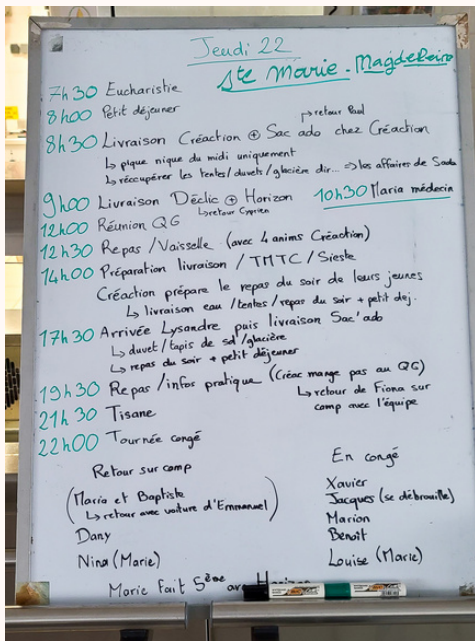 Jeudi 22
Ste Marie-Magdeleine
7h30 Eucharistie
8h00 Petit déjeuner
↱ retour Paul
8h30 Livraison Créaction ⊕ Sac ado chez Créaction
↳ pique nique du midi uniquement
↳ réccupérer les tentes/duvets/glacière dir... ⇒ les affaires de
9h00 Livraison Déclic ⊕ Horizon
↳ retour Cyprien
10h30 Maria médecin
12h00 Réunion QG
12h30 Repas/Vaisselle (avec 4 anims Créaction)
14h00 Préparation livraison / TMTC / Sieste
Créaction prépare le repas du soir de leurs jeunes
↳ livraison eau/tentes/repas du soir + petit dej.
17h30 Arrivée Lysandre puis livraison Sac'ado
↳ duvet/tapis de sol/glacière
↳ repas du soir + petit déjeuner
19h30 Repas/infos pratique (Créac mange pas au QG)
↳ retour de Fiona sur
camp avec l'équipe
21h30 Tisane
22h00 Tournée congé
Retour sur camp
(Maria et Baptiste
↳ retour avec voiture d'Emmanuel)
Dany
Nina (Marie)
En congé
Xavier
Jacques (se débrouille)
Marion
Benoit
Louise (Marie)
Marie fait 5ème